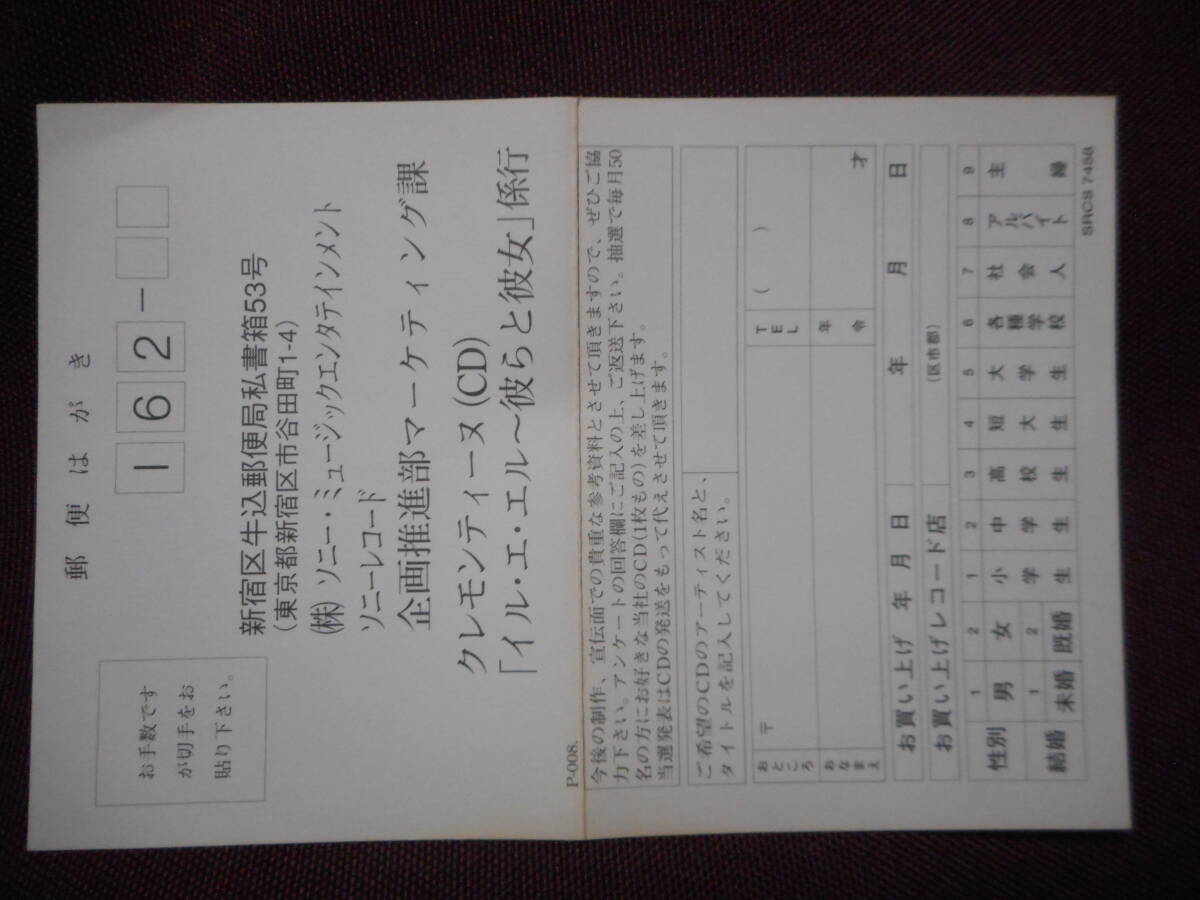 郵便はがき
162-
お手数です
が切手をお
貼り下さい。
新宿区牛込郵便局私書箱53号
(東京都新宿区市谷田町1-4)
(株)ソニー・ミュージックエンタテインメント
ソニーレコード
企画推進部マーケティング課
クレモンティーヌ(CD)
「イル・エ・エル〜彼らと彼女」係行
P-008.
今後の制作、宣伝面での貴重な参考資料とさせて頂きますので、ぜひご協
力下さい。アンケートの回答欄にご記入の上、ご返送下さい。抽選で毎月50
名の方にお好きな当社のCD(1枚もの)を差し上げます。
当選発表はCDの発送をもって代えさせて頂きます。
ご希望のCDのアーティスト名と、
タイトルを記入してください。
おところ 〒 TEL ( )
おなまえ 年令 才
お買い上げ年月日 年 月 日
お買い上げレコード店 (区市郡)
性別 1男 2女
結婚 1未婚 2既婚
1小学生 2中学生 3高校生 4短大生 5大学生 6各種学校 7社会人 8アルバイト 9主婦
SRCS 7458